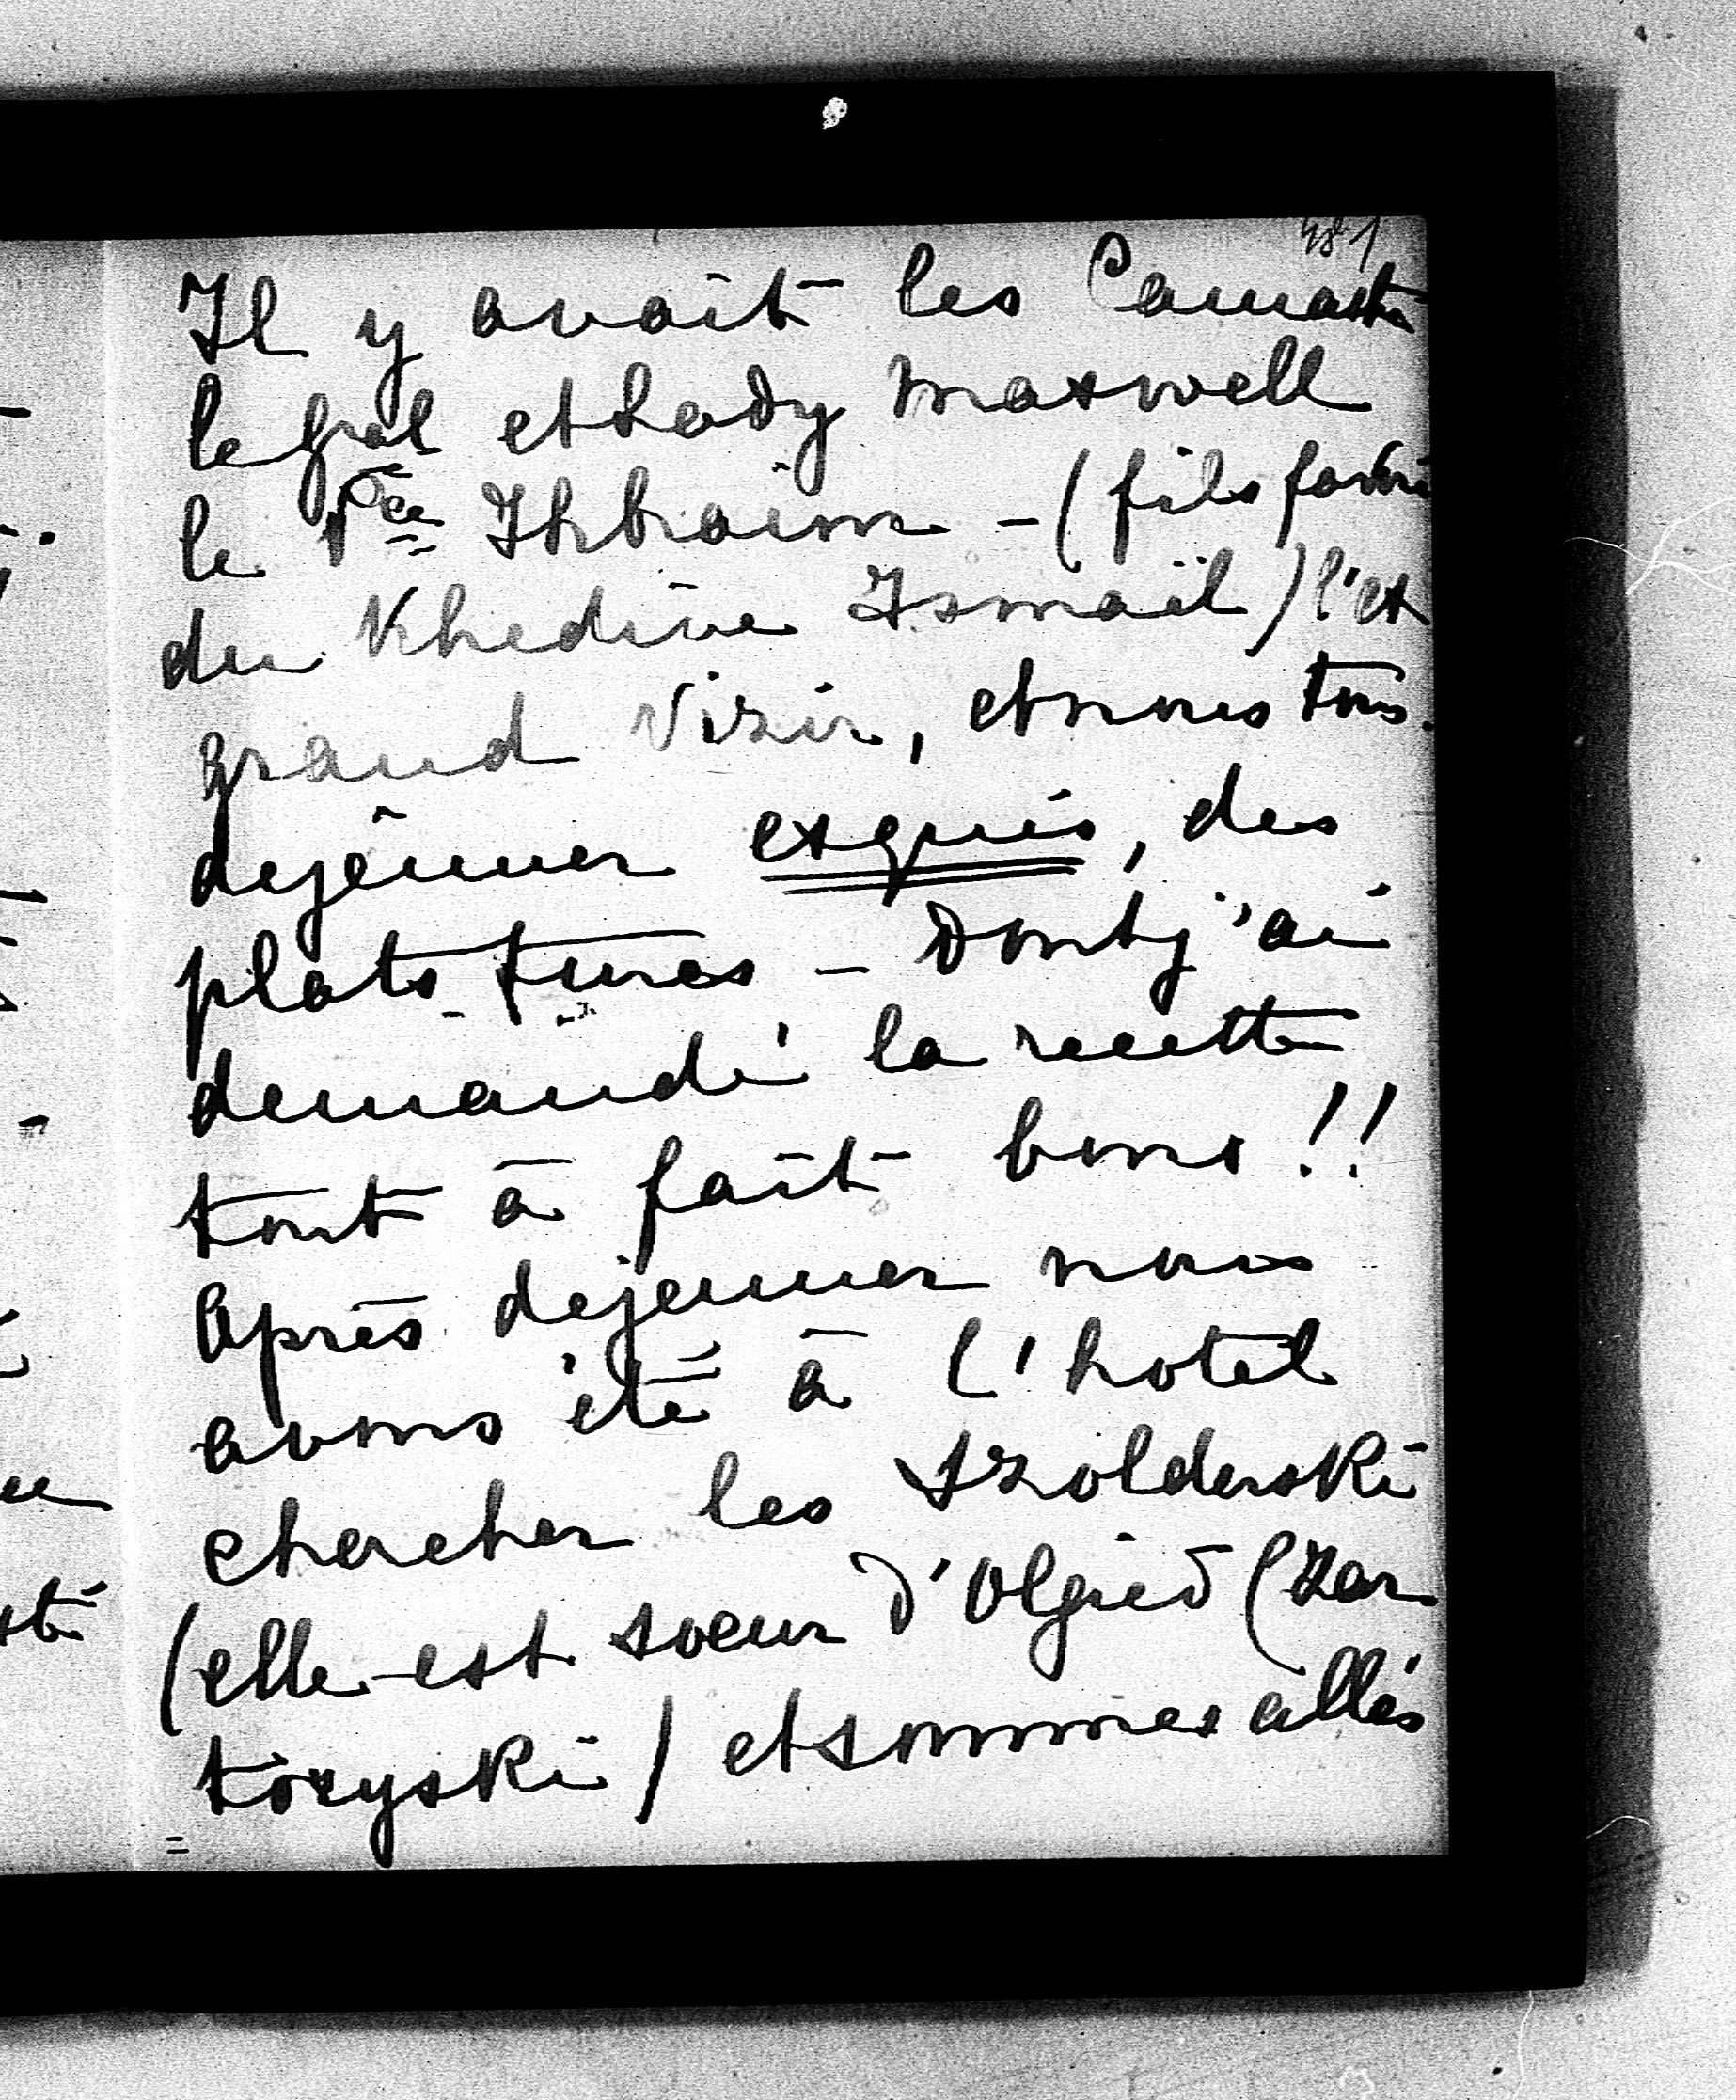 Il y avait les Camastra
le gral et Lady Maxwell
le Pce Ihbraim - (fils favori
du Khedive Ismaïl) l'ex
grand Vizir, et nous tous.
dejêuner exquis, des
plats turcs - dont j'ai
demandé la recette
tout à fait bons !!
Après dejeuner nous
avons été à l'hotel
chercher les Szolderski
(elle est soeur d'Olgierd Czar
toryski) et sommes allés